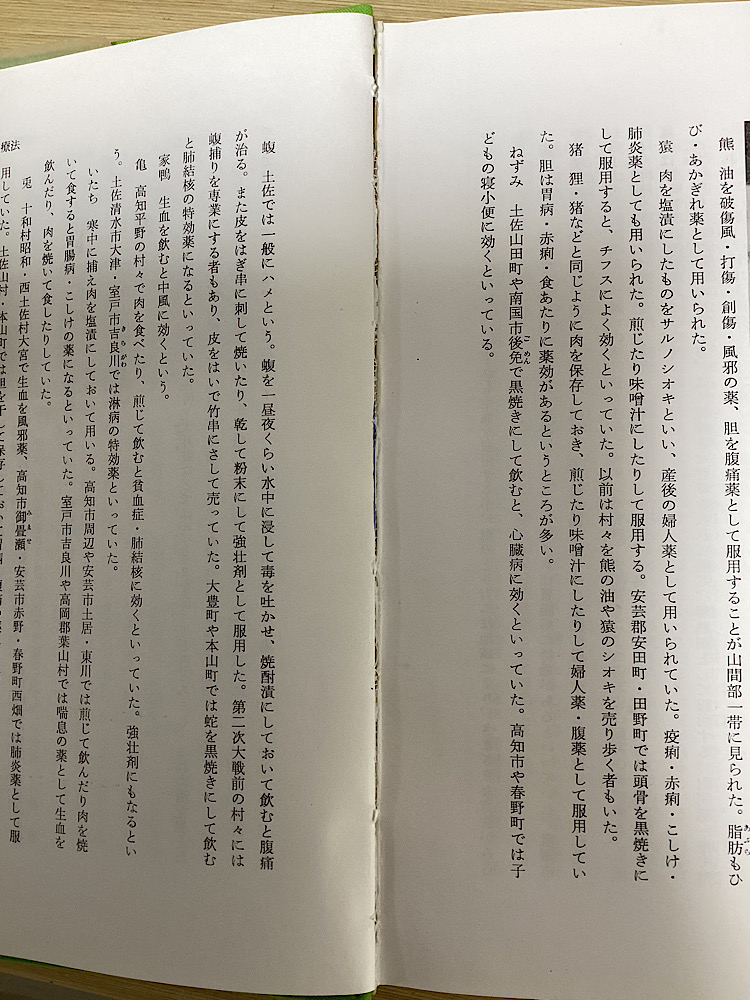 熊　油を破傷風・打傷・創傷・風邪の薬、胆を腹痛薬として服用することが山間部一帯に見られた。脂肪もひ
び・あかぎれ薬として用いられた。
猿　肉を塩漬にしたものをサルノシオキといい、産後の婦人薬として用いられていた。疫痢・赤痢・こしけ・
肺炎薬としても用いられた。煎じたり味噌汁にしたりして服用する。安芸郡安田町・田野町では頭骨を黒焼きに
して服用すると、チフスによく効くといっていた。以前は村々を熊の油や猿のシオキを売り歩く者もいた。
猪　狸・猪などと同じように肉を保存しておき、煎じたり味噌汁にしたりして婦人薬・腹薬として服用してい
た。胆は胃病・赤痢・食あたりに薬効があるというところが多い。
ねずみ　土佐山田町や南国市後免で黒焼きにして飲むと、心臓病に効くといっていた。高知市や春野町では子
どもの寝小便に効くといっている。
療法
蝮　土佐では一般にハメという。蝮を一昼夜くらい水中に浸して毒を吐かせ、焼酎漬にしておいて飲むと腹痛
が治る。また皮をはぎ串に刺して焼いたり、乾して粉末にして強壮剤として服用した。第二次大戦前の村々には
蝮捕りを専業にする者もあり、皮をはいで竹串にさして売っていた。大豊町や本山町では蛇を黒焼きにして飲む
と肺結核の特効薬になるといっていた。
家鴨　生血を飲むと中風に効くという。
亀　高知平野の村々で肉を食べたり、煎じて飲むと貧血症・肺結核に効くといっていた。強壮剤にもなるとい
う。土佐清水市大津・室戸市吉良川では淋病の特効薬といっていた。
いたち　寒中に捕え肉を塩漬にしておいて用いる。高知市周辺や安芸市土居・東川では煎じて飲んだり肉を焼
いて食すると胃腸病・こしけの薬になるといっていた。室戸市吉良川や高岡郡葉山村では喘息の薬として生血を
飲んだり、肉を焼いて食したりしていた。
兎　十和村昭和・西土佐村大宮で生血を風邪薬、高知市御畳瀬・安芸市赤野・春野町西畑では肺炎薬として服
用していた。土佐山村・本山町では胆を干して保存しておいて